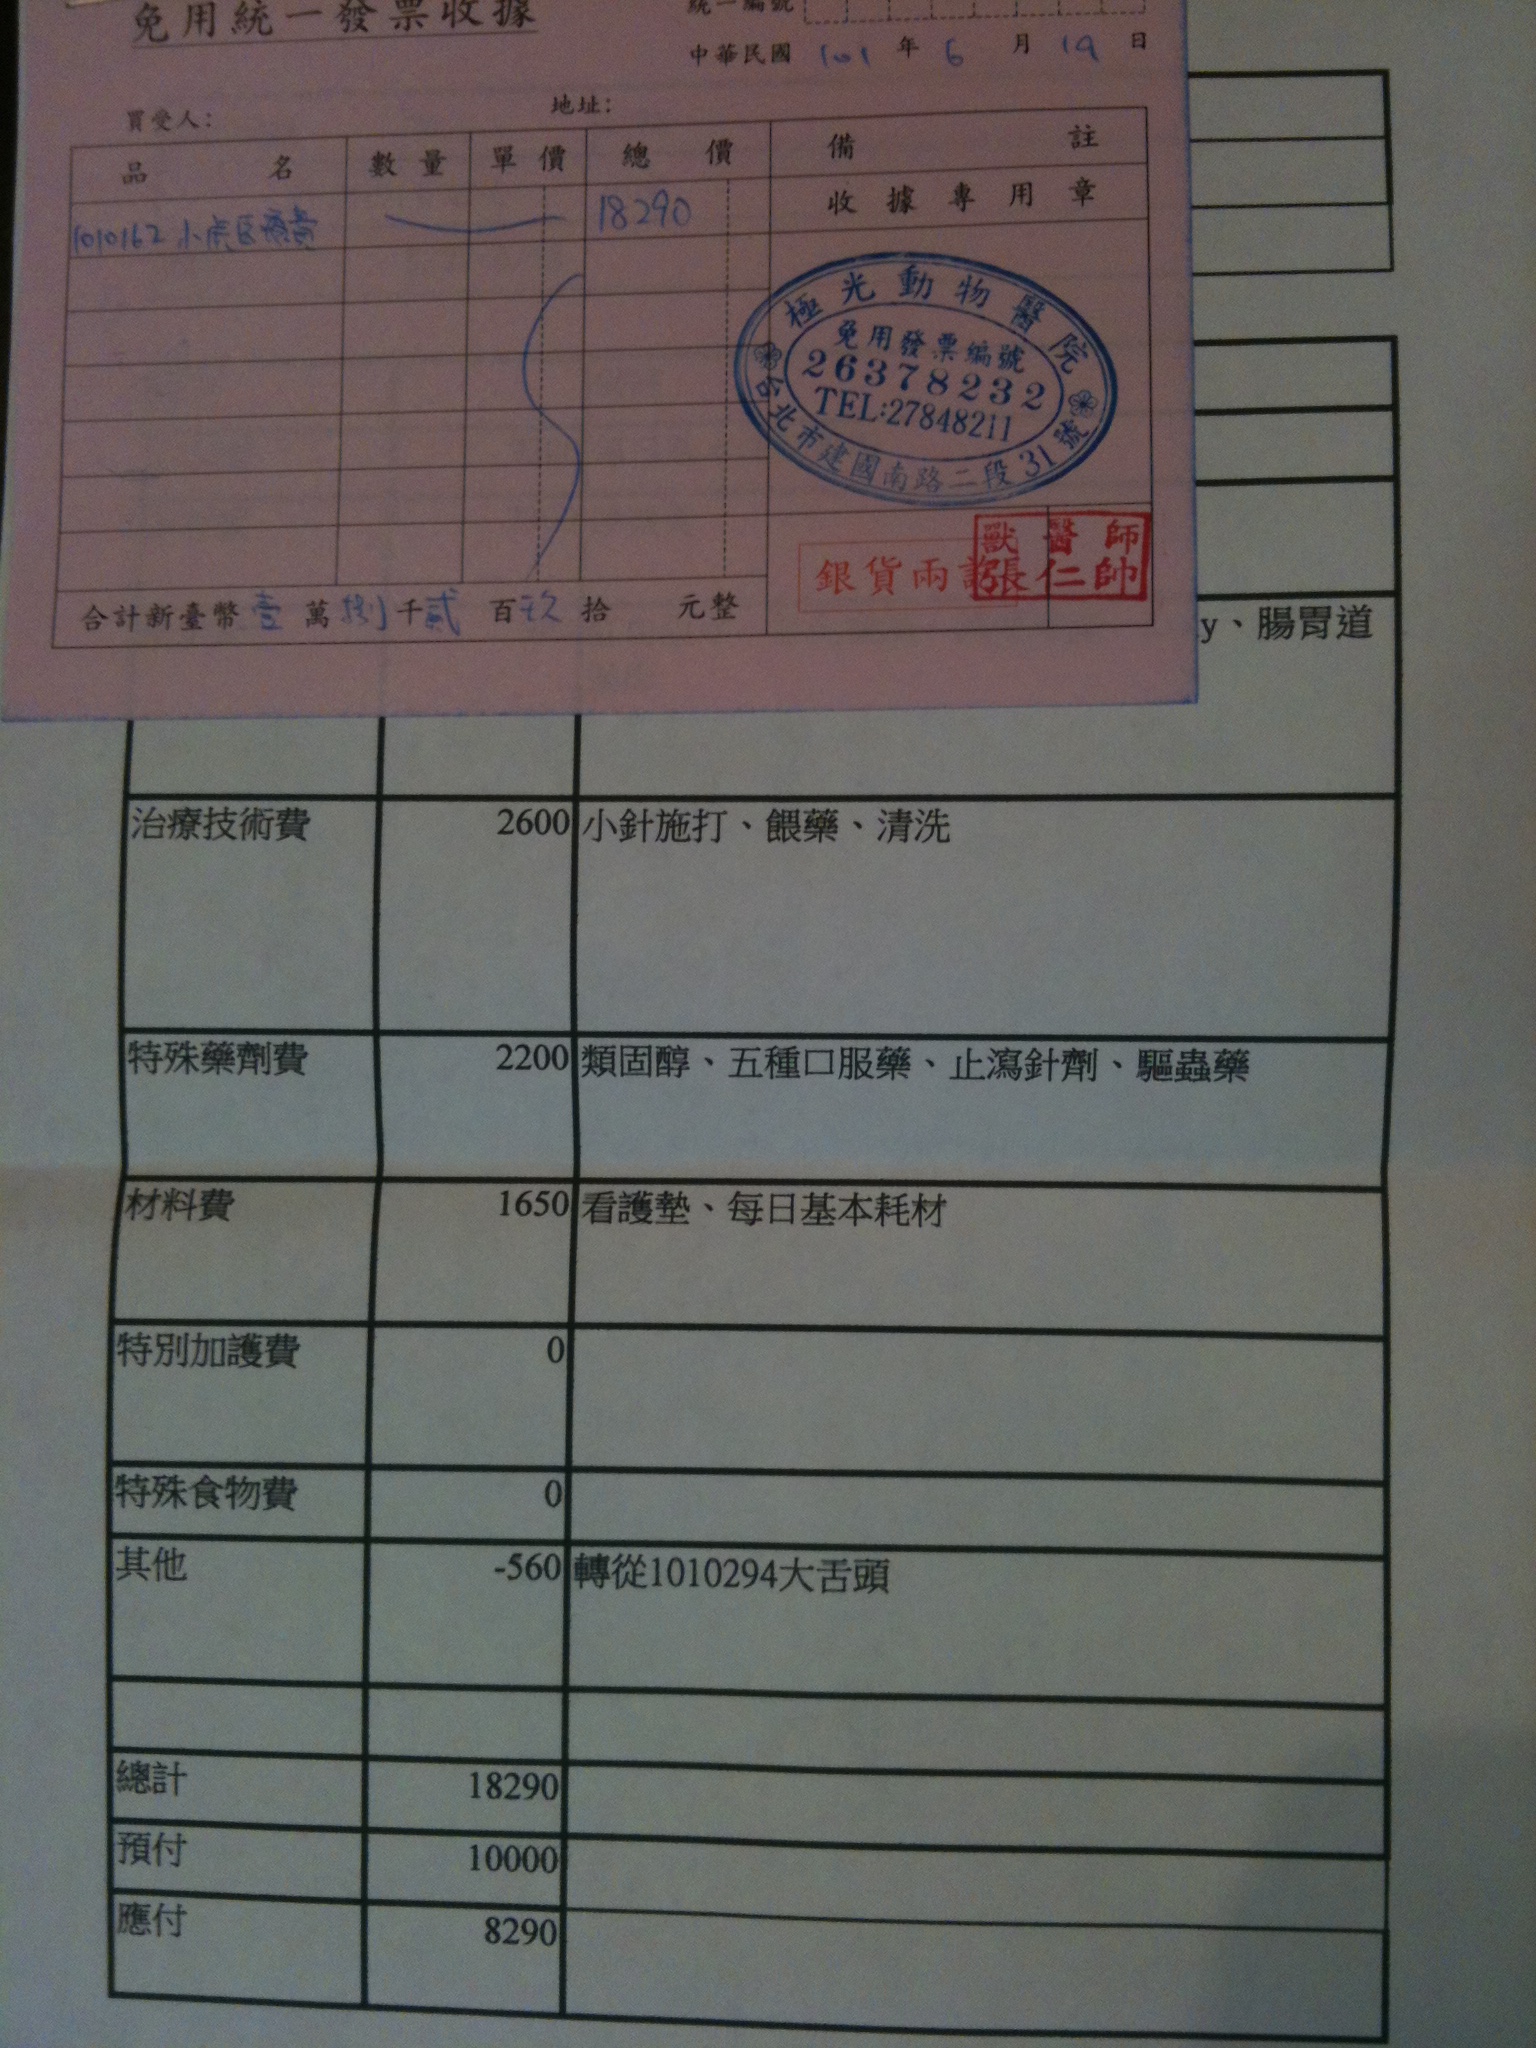 免用統一發票收據
統一編號
中華民國 101 年 6 月 19 日
買受人：
地址：
品名 數量 單價 總價 備註
收據專用章
1010162 小虎医療費 18290
極光動物醫院
免用發票編號
26378232
TEL:27848211
台北市建國南路二段31號
銀貨兩訖
獸醫師
張仁帥
合計新臺幣壹萬捌千貳百玖拾元整
y、腸胃道
治療技術費 2600 小針施打、餵藥、清洗
特殊藥劑費 2200 類固醇、五種口服藥、止瀉針劑、驅蟲藥
材料費 1650 看護墊、每日基本耗材
特別加護費 0
特殊食物費 0
其他 -560 轉從1010294大舌頭
總計 18290
預付 10000
應付 8290